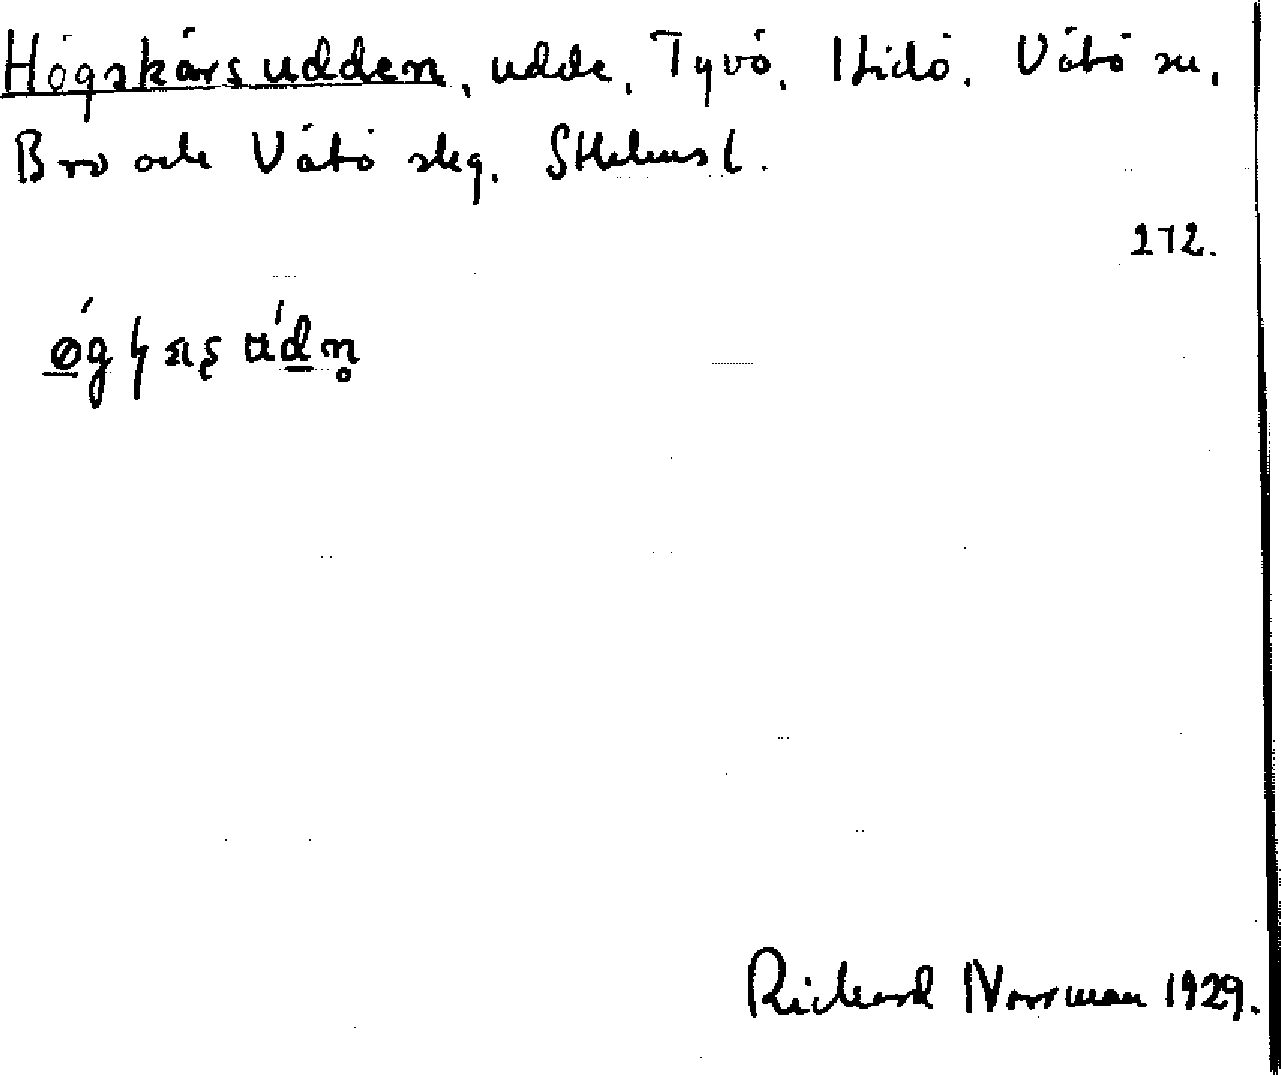 Högskärsudden, udde, Tyvö, Itidö, Vätö sn,
Bro och Vätö skg. Sthlms l.
272.
Richard Norrman 1929.